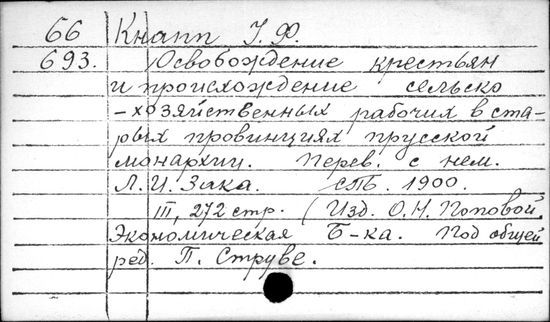 66 Кнапп Г. Ф.
693. Освобождение крестьян
и происхождение сельско
-хозяйственных рабочих в ста-
рых провинциях прусской
монархии. Перев. с нем.
Л. И. Зака. СПБ. 1900.
III, 272 стр. (Изд. О. Н. Поповой.
Экономическая Б-ка. Под общей
ред. П. Струве.